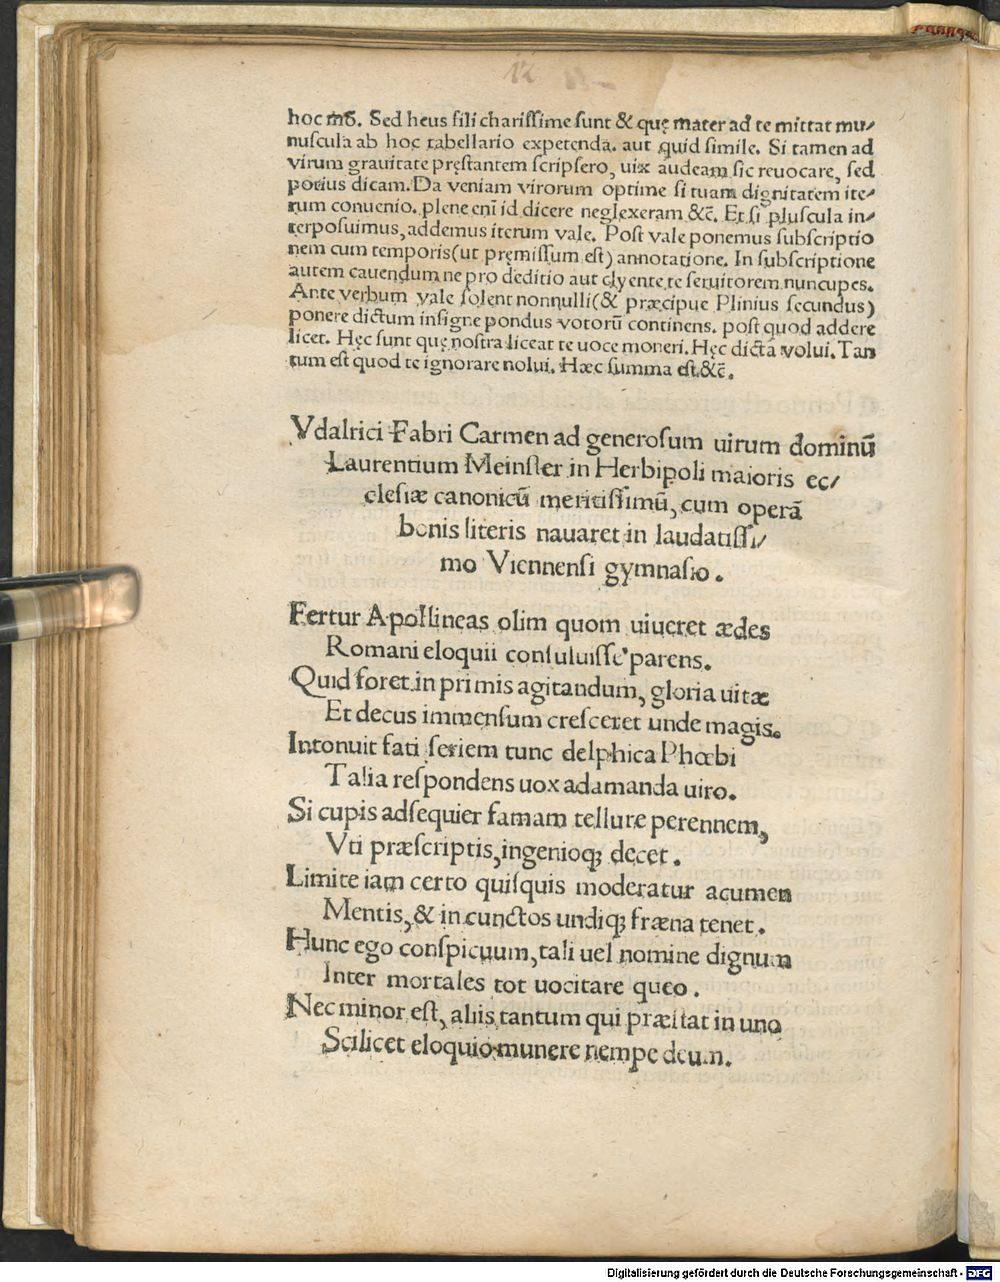 12
hoc mõ. Sed heus fili chariſſime ſunt & quę mater ad te mittat mu/
nuſcula ab hoc tabellario expetenda. aut quid ſimile. Si tamen ad
virum grauitate pręſtantem ſcripſero, uix audeam ſic reuocare, ſed
potius dicam. Da veniam virorum optime ſi tuam dignitatem ite/
rum conuenio. plene enĩ id dicere neglexeram &c̃. Et ſi pluſcula in/
terpoſuimus, addemus iterum vale. Poſt vale ponemus ſubſcriptio
nem cum temporis(ut pręmiſſum eſt) annotatione. In ſubſcriptione
autem cauendum ne pro deditio aut clyente te ſeruitorem nuncupes.
Ante verbum vale ſolent nonnulli(& præcipue Plinius ſecundus)
ponere dictum inſigne pondus votorũ continens. poſt quod addere
licet. Hęc ſunt quę noſtra liceat te uoce moneri. Hęc dicta volui. Tan
tum eſt quod te ignorare nolui. Hæc ſumma eſt.&c̃.
Vdalrici Fabri Carmen ad generoſum uirum dominũ
Laurentium Meinſter in Herbipoli maioris ec/
cleſiæ canonicũ meritiſſimũ, cum operã
bonis literis nauaret in laudatiſſi/
mo Viennenſi gymnaſio.
Fertur Apollineas olim quom uiueret ædes
Romani eloquii conſuluiſſe parens.
Quid foret in primis agitandum, gloria uitæ
Et decus immenſum creſceret unde magis.
Intonuit fati ſeriem tunc delphica Phœbi
Talia reſpondens uox adamanda uiro.
Si cupis adſequier famam tellure perennem,
Vti præſcriptis, ingenioq; decet.
Limite iam certo quiſquis moderatur acumen
Mentis, & in cunctos undiq; fræna tenet.
Hunc ego conſpicuum, tali uel nomine dignum
Inter mortales tot uocitare queo.
Nec minor eſt, aliis tantum qui præſtat in uno
Scilicet eloquio munere nempe deum.
Digitalisierung gefördert durch die Deutsche Forschungsgemeinschaft - DFG